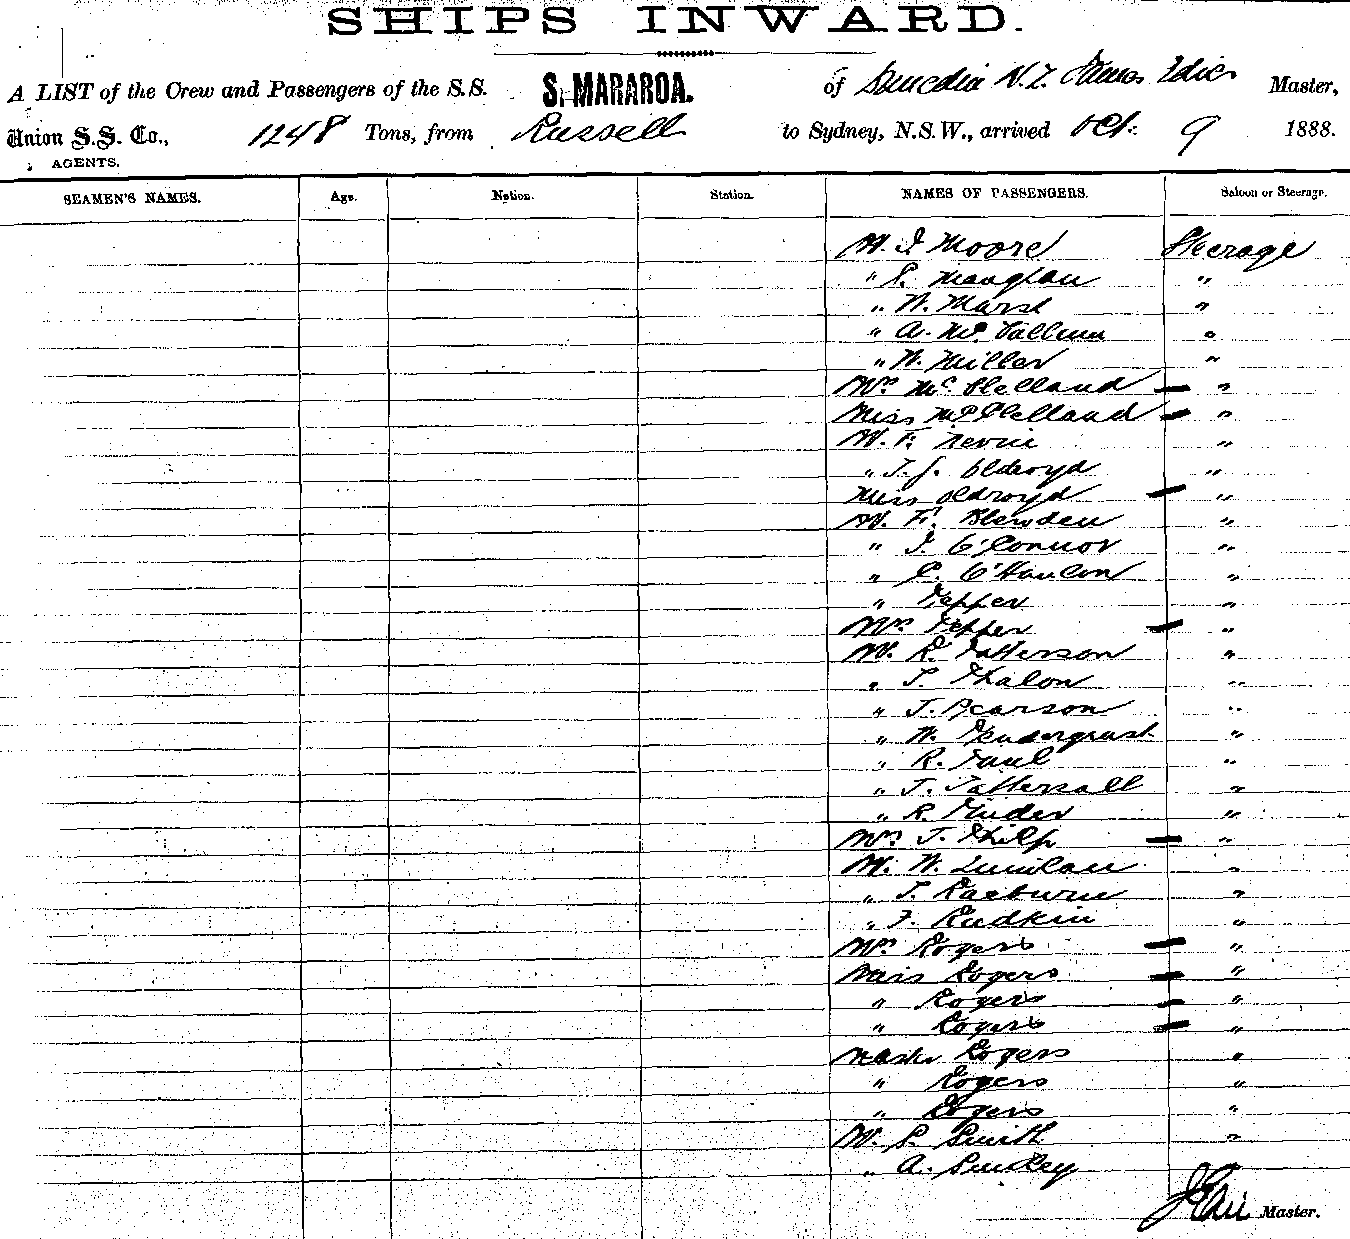 SHIPS INWARD.
A LIST of the Crew and Passengers of the S.S. S. MARAROA. of Dunedin N.Z. James Edie Master,
Union S.S. Co., 1248 Tons, from Russell to Sydney, N.S.W., arrived Oct. 9 1888.
AGENTS.
SEAMEN'S NAMES. Age. Nation. Station. NAMES OF PASSENGERS. Saloon or Steerage.
Mr. J Moore Steerage
" P. "
" W. Marsh "
" A. Mc Callum "
" W. Miller "
Mrs Mc Clelland "
Miss Mc Clelland "
Mr. F. "
" T. J. Oldroyd "
Miss Oldroyd "
Mr. F. "
" J. O'Connor "
" P. O'Hanlon "
" Pepper "
Mrs Pepper "
Mr. R. Patterson "
" T. Phalon "
" J. Pearson "
" W. "
" R. Paul "
" J. Tattersall "
" R. "
Mrs J. Philp "
Mr. W. Quinlan "
" T. Raeburn "
" F. Rudkin "
Mrs Rogers "
Miss Rogers "
" Rogers "
" Rogers "
Master Rogers "
" Rogers "
" Rogers "
Mr. P. Smith "
" A.
Master.